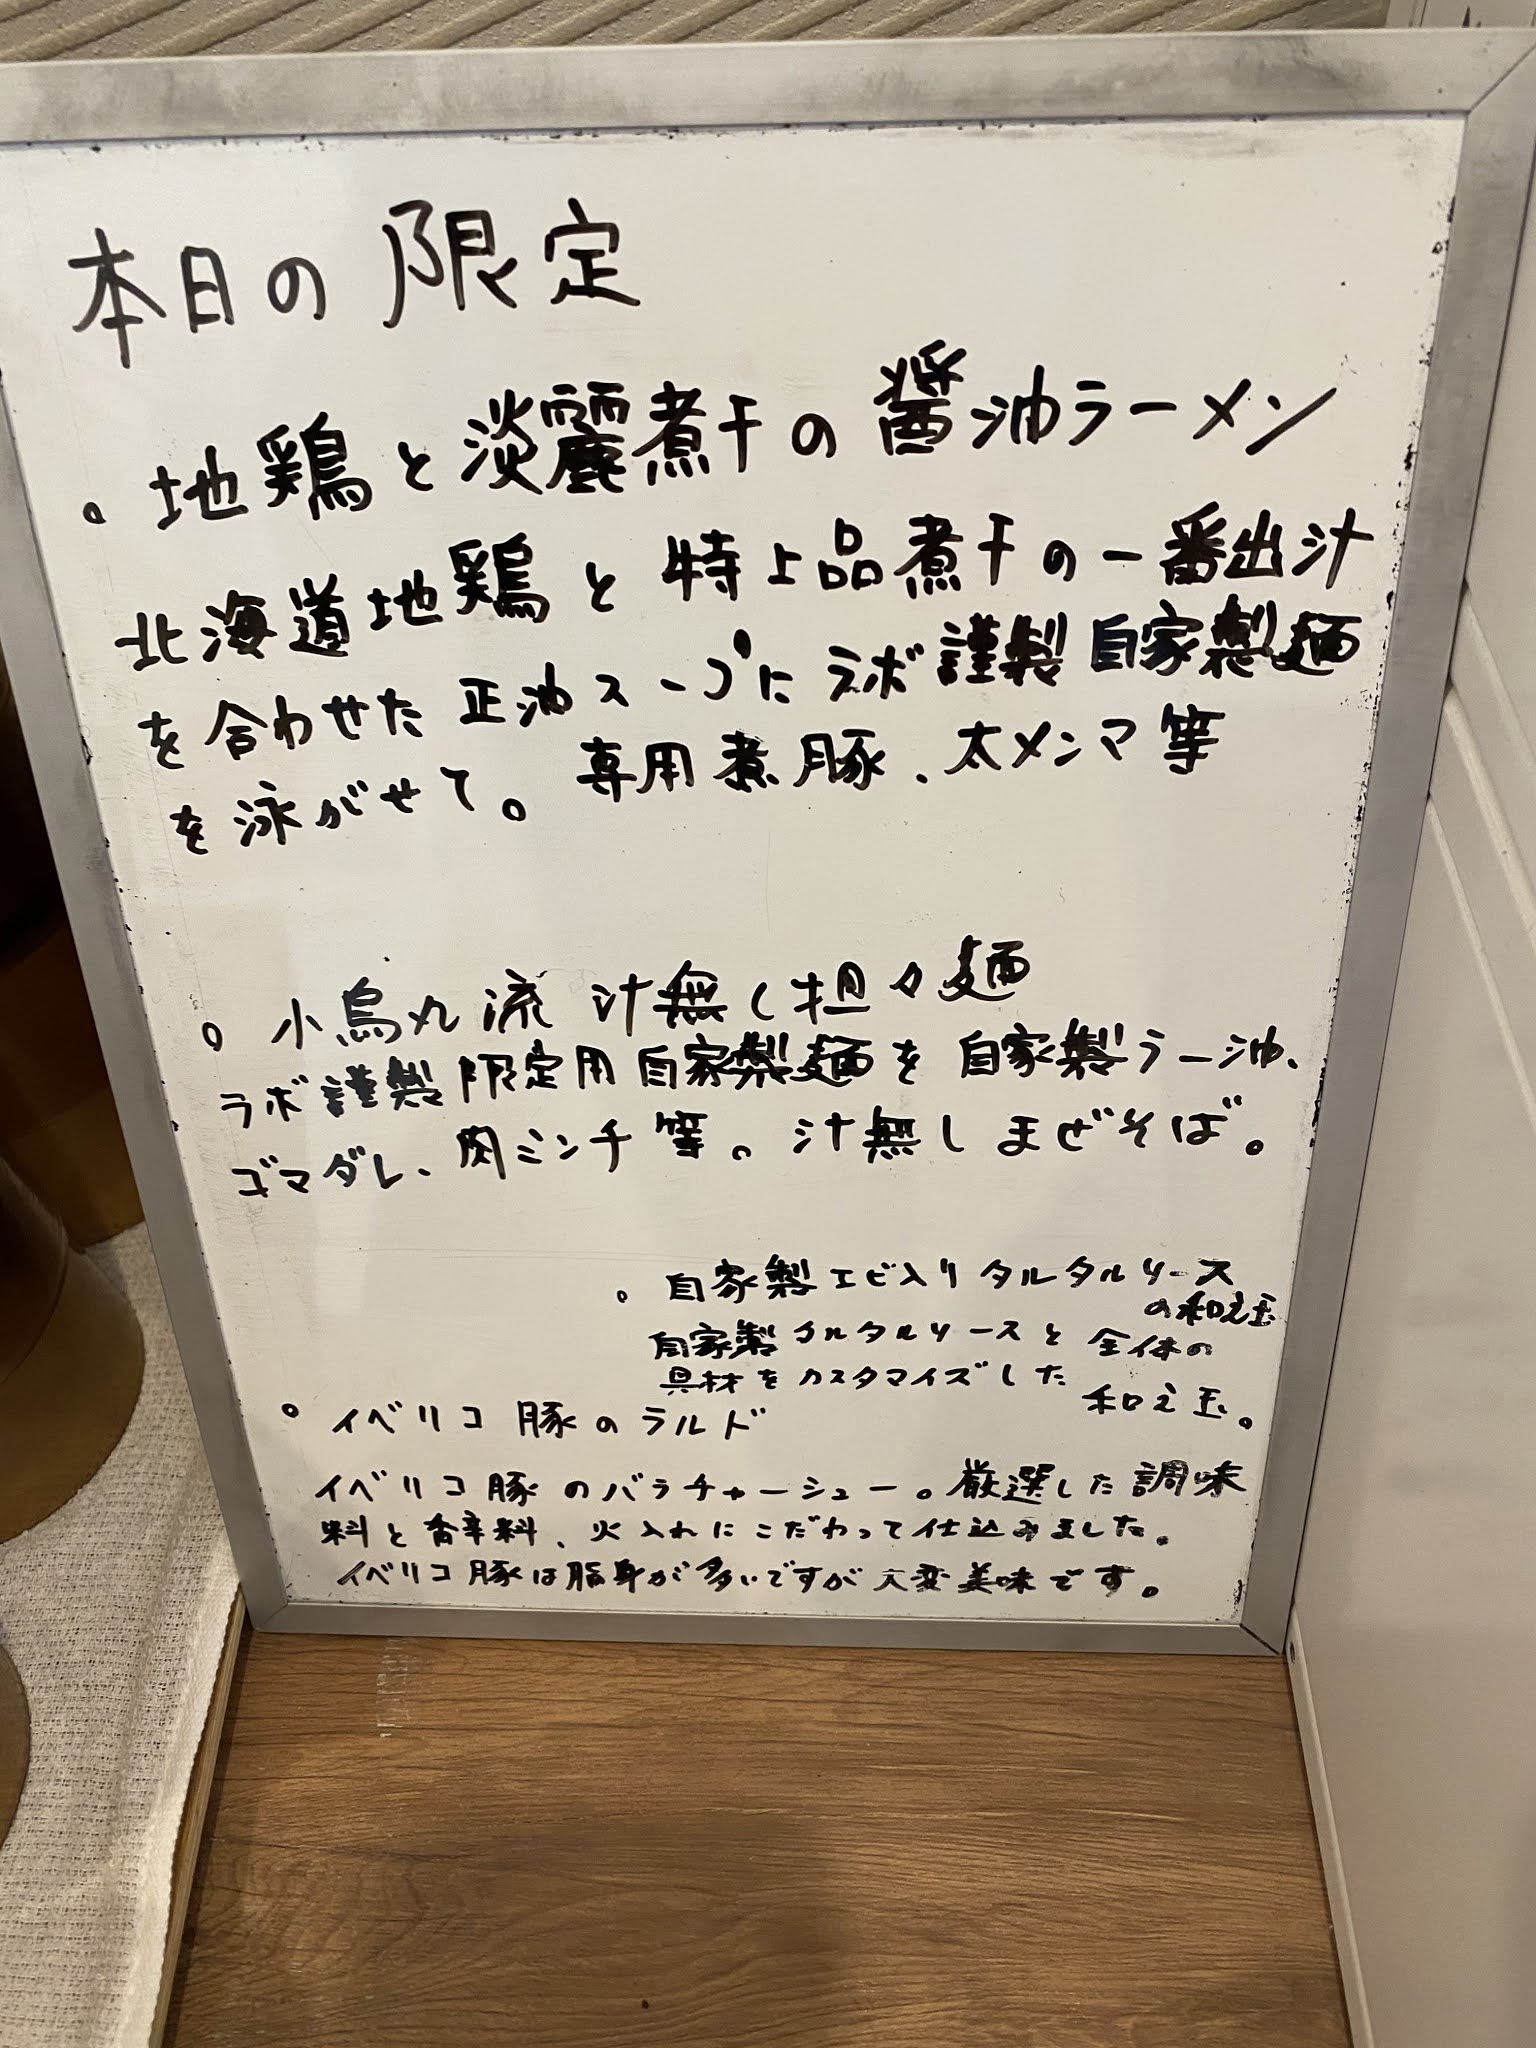 本日の限定
。地鶏と淡麗煮干の醤油ラーメン
北海道地鶏と特上品煮干の一番出汁
を合わせた正油スープにラボ謹製自家製麺
を泳がせて。専用煮豚、太メンマ等
。小烏丸流 汁無し担々麺
ラボ謹製限定用自家製麺を自家製ラー油、
ゴマダレ、肉ミンチ等。汁無しまぜそば。
。自家製エビ入りタルタルソース
の和え玉
自家製タルタルソースと全体の
具材をカスタマイズした
和え玉。
。イベリコ豚のラルド
イベリコ豚のバラチャーシュー。厳選した調味
料と香辛料、火入れにこだわって仕込みました。
イベリコ豚は脂身が多いですが大変美味です。